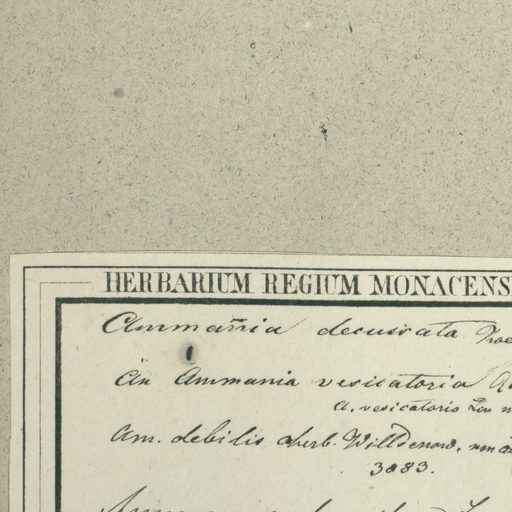 HERBARIUM REGIUM MONACENS
Ammañia decussata
An Ammania vesicatoria
A. vesicatoria Lin
Am. debilis herb. Willdenow, non
3083.